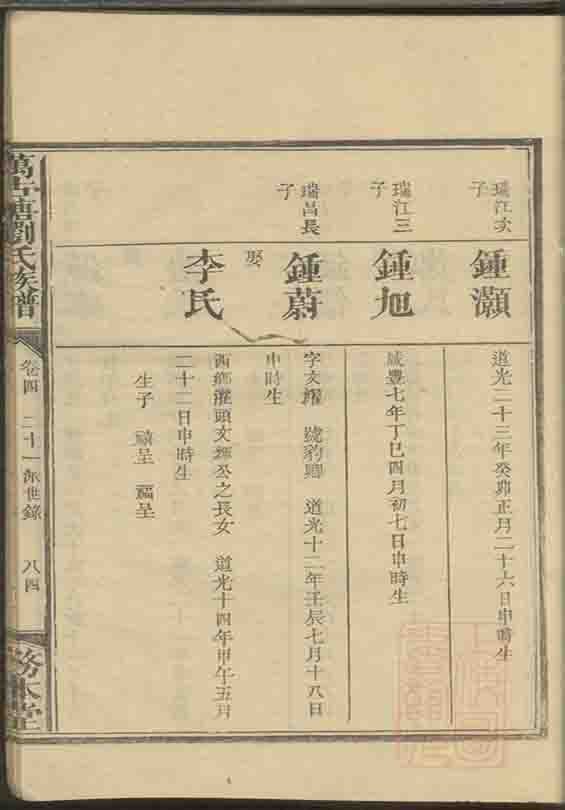 瑞江次子
鍾灝
道光二十三年癸卯正月二十六日申時生
瑞江三子
鍾旭
咸豐七年丁巳四月初七日申時生
瑞昌長子
鍾蔚
字文耀 號豹卿 道光十二年壬辰七月十八日
申時生
娶
李氏
西鄉 頭文 公之長女 道光十四年甲午五月
二十二日申時生
生子 呈 呈
萬古塘劉氏族譜
卷四 二十一派世錄 八四
務本堂